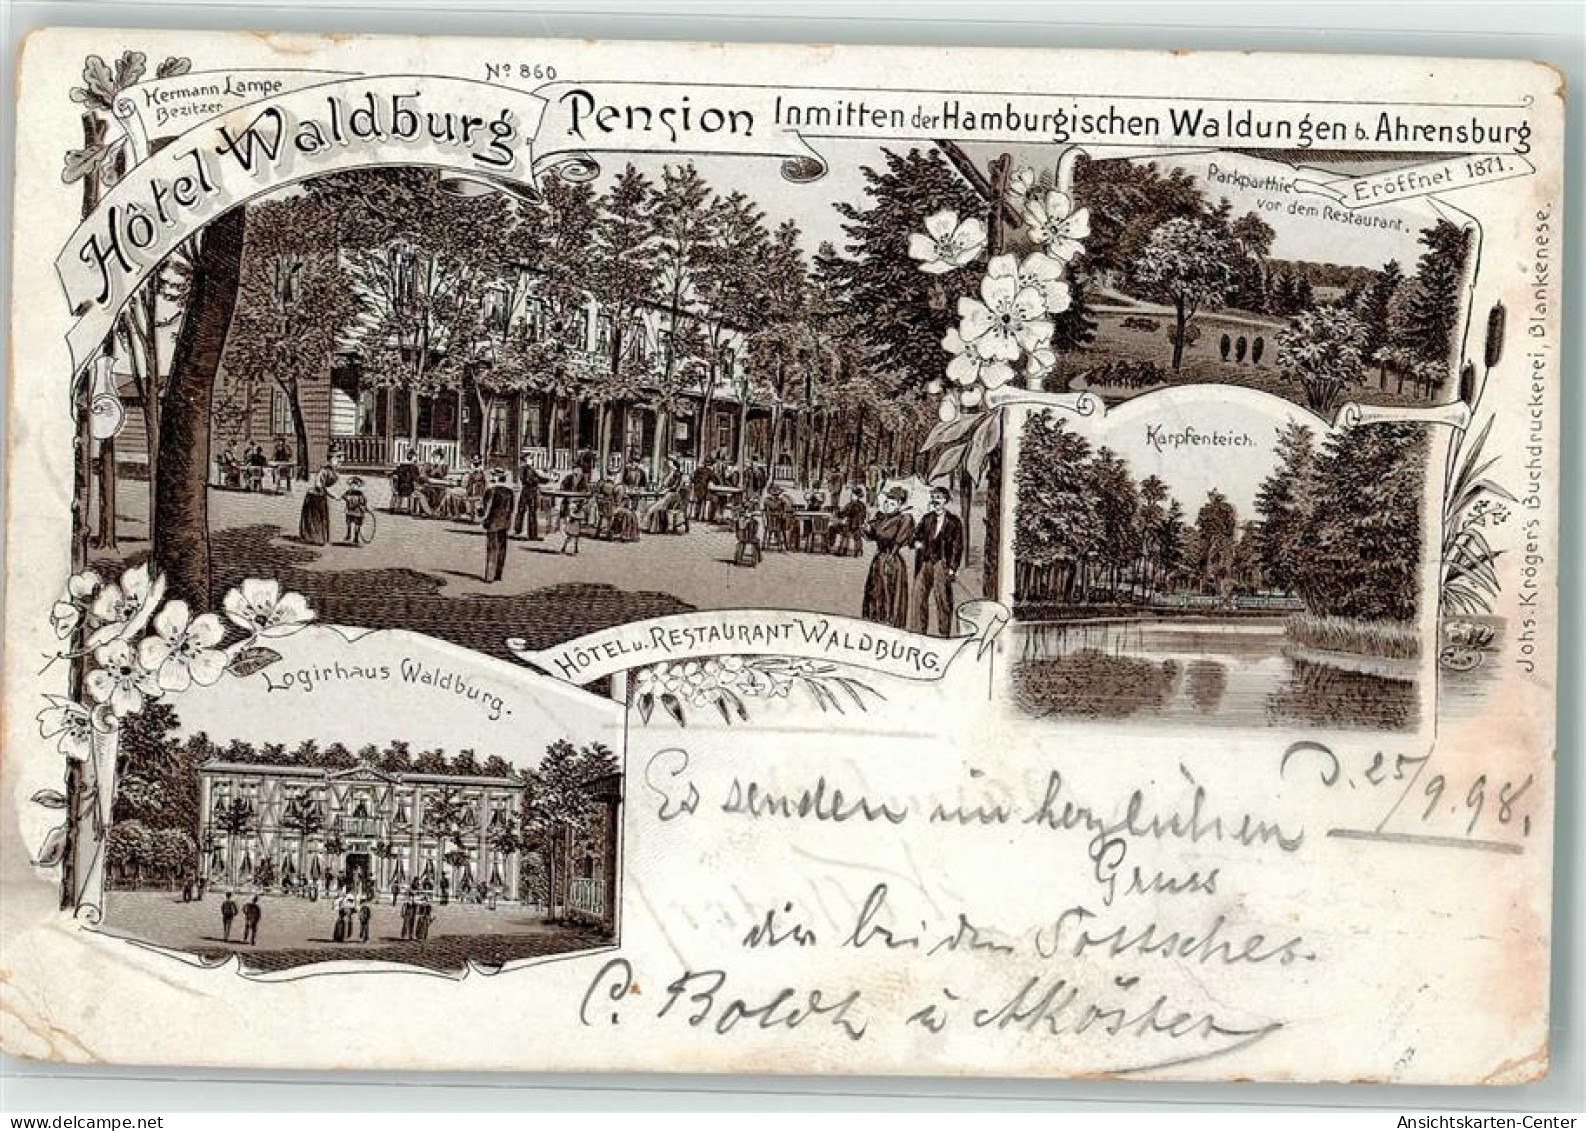 Hermann Lampe
Bezitzer
Nº 860
Hôtel Waldburg
Pension Inmitten der Hamburgischen Waldungen b. Ahrensburg
Eröffnet 1871.
Parkparthie
vor dem Restaurant.
Karpfenteich.
Johs. Kröger's Buchdruckerei, Blankenese.
HÔTEL u. RESTAURANT WALDBURG.
Logirhaus Waldburg.
D. 25/9.98.
Es senden im herzlichen
Gruss
die beiden
C. Boldt u
delcampe.net
Ansichtskarten-Center